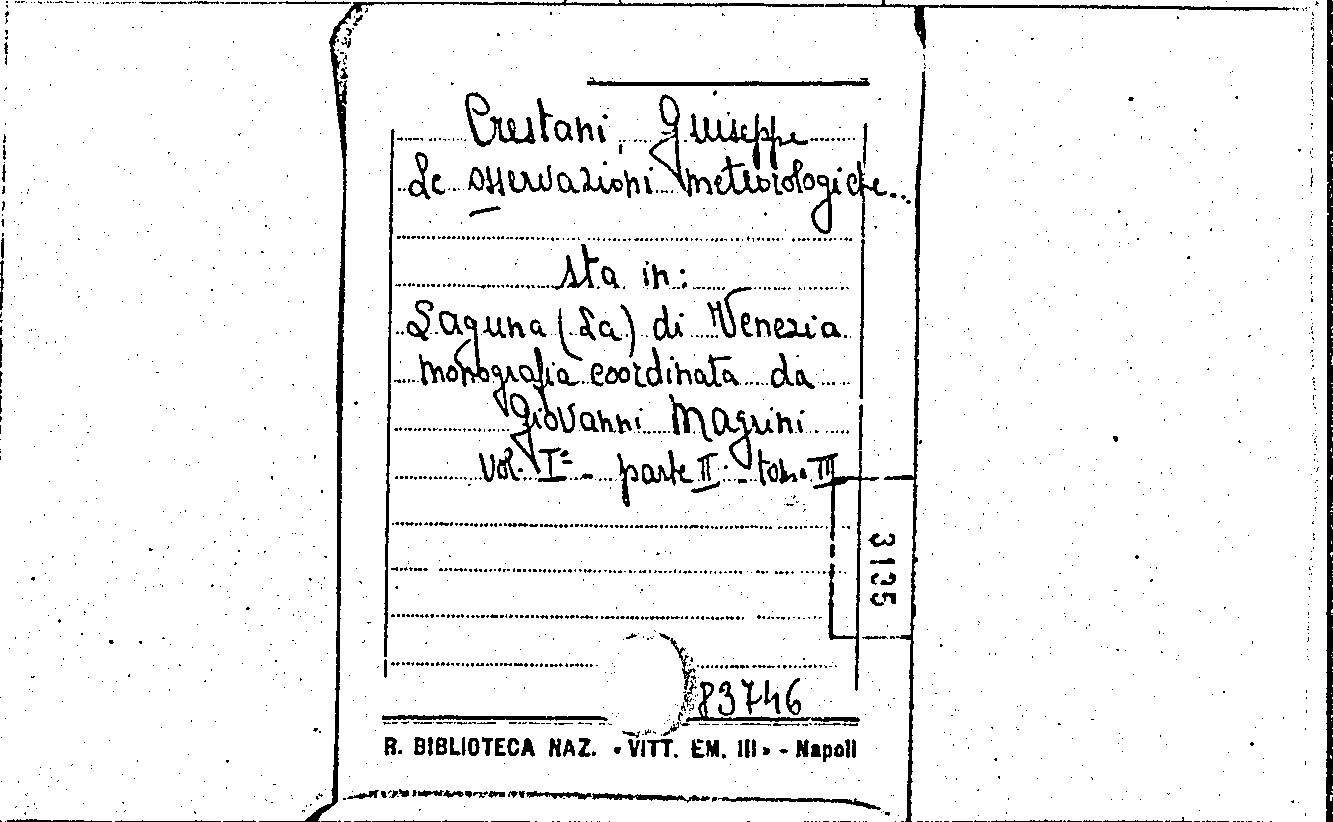 Crestani, Giuseppe
Le osservazioni meteorologiche...
sta in:
Laguna (La) di Venezia
monografia coordinata da
Giovanni Magrini
vol. I° - parte II - tom. III
3135
83746
R. BIBLIOTECA NAZ. « VITT. EM. III » - Napoli